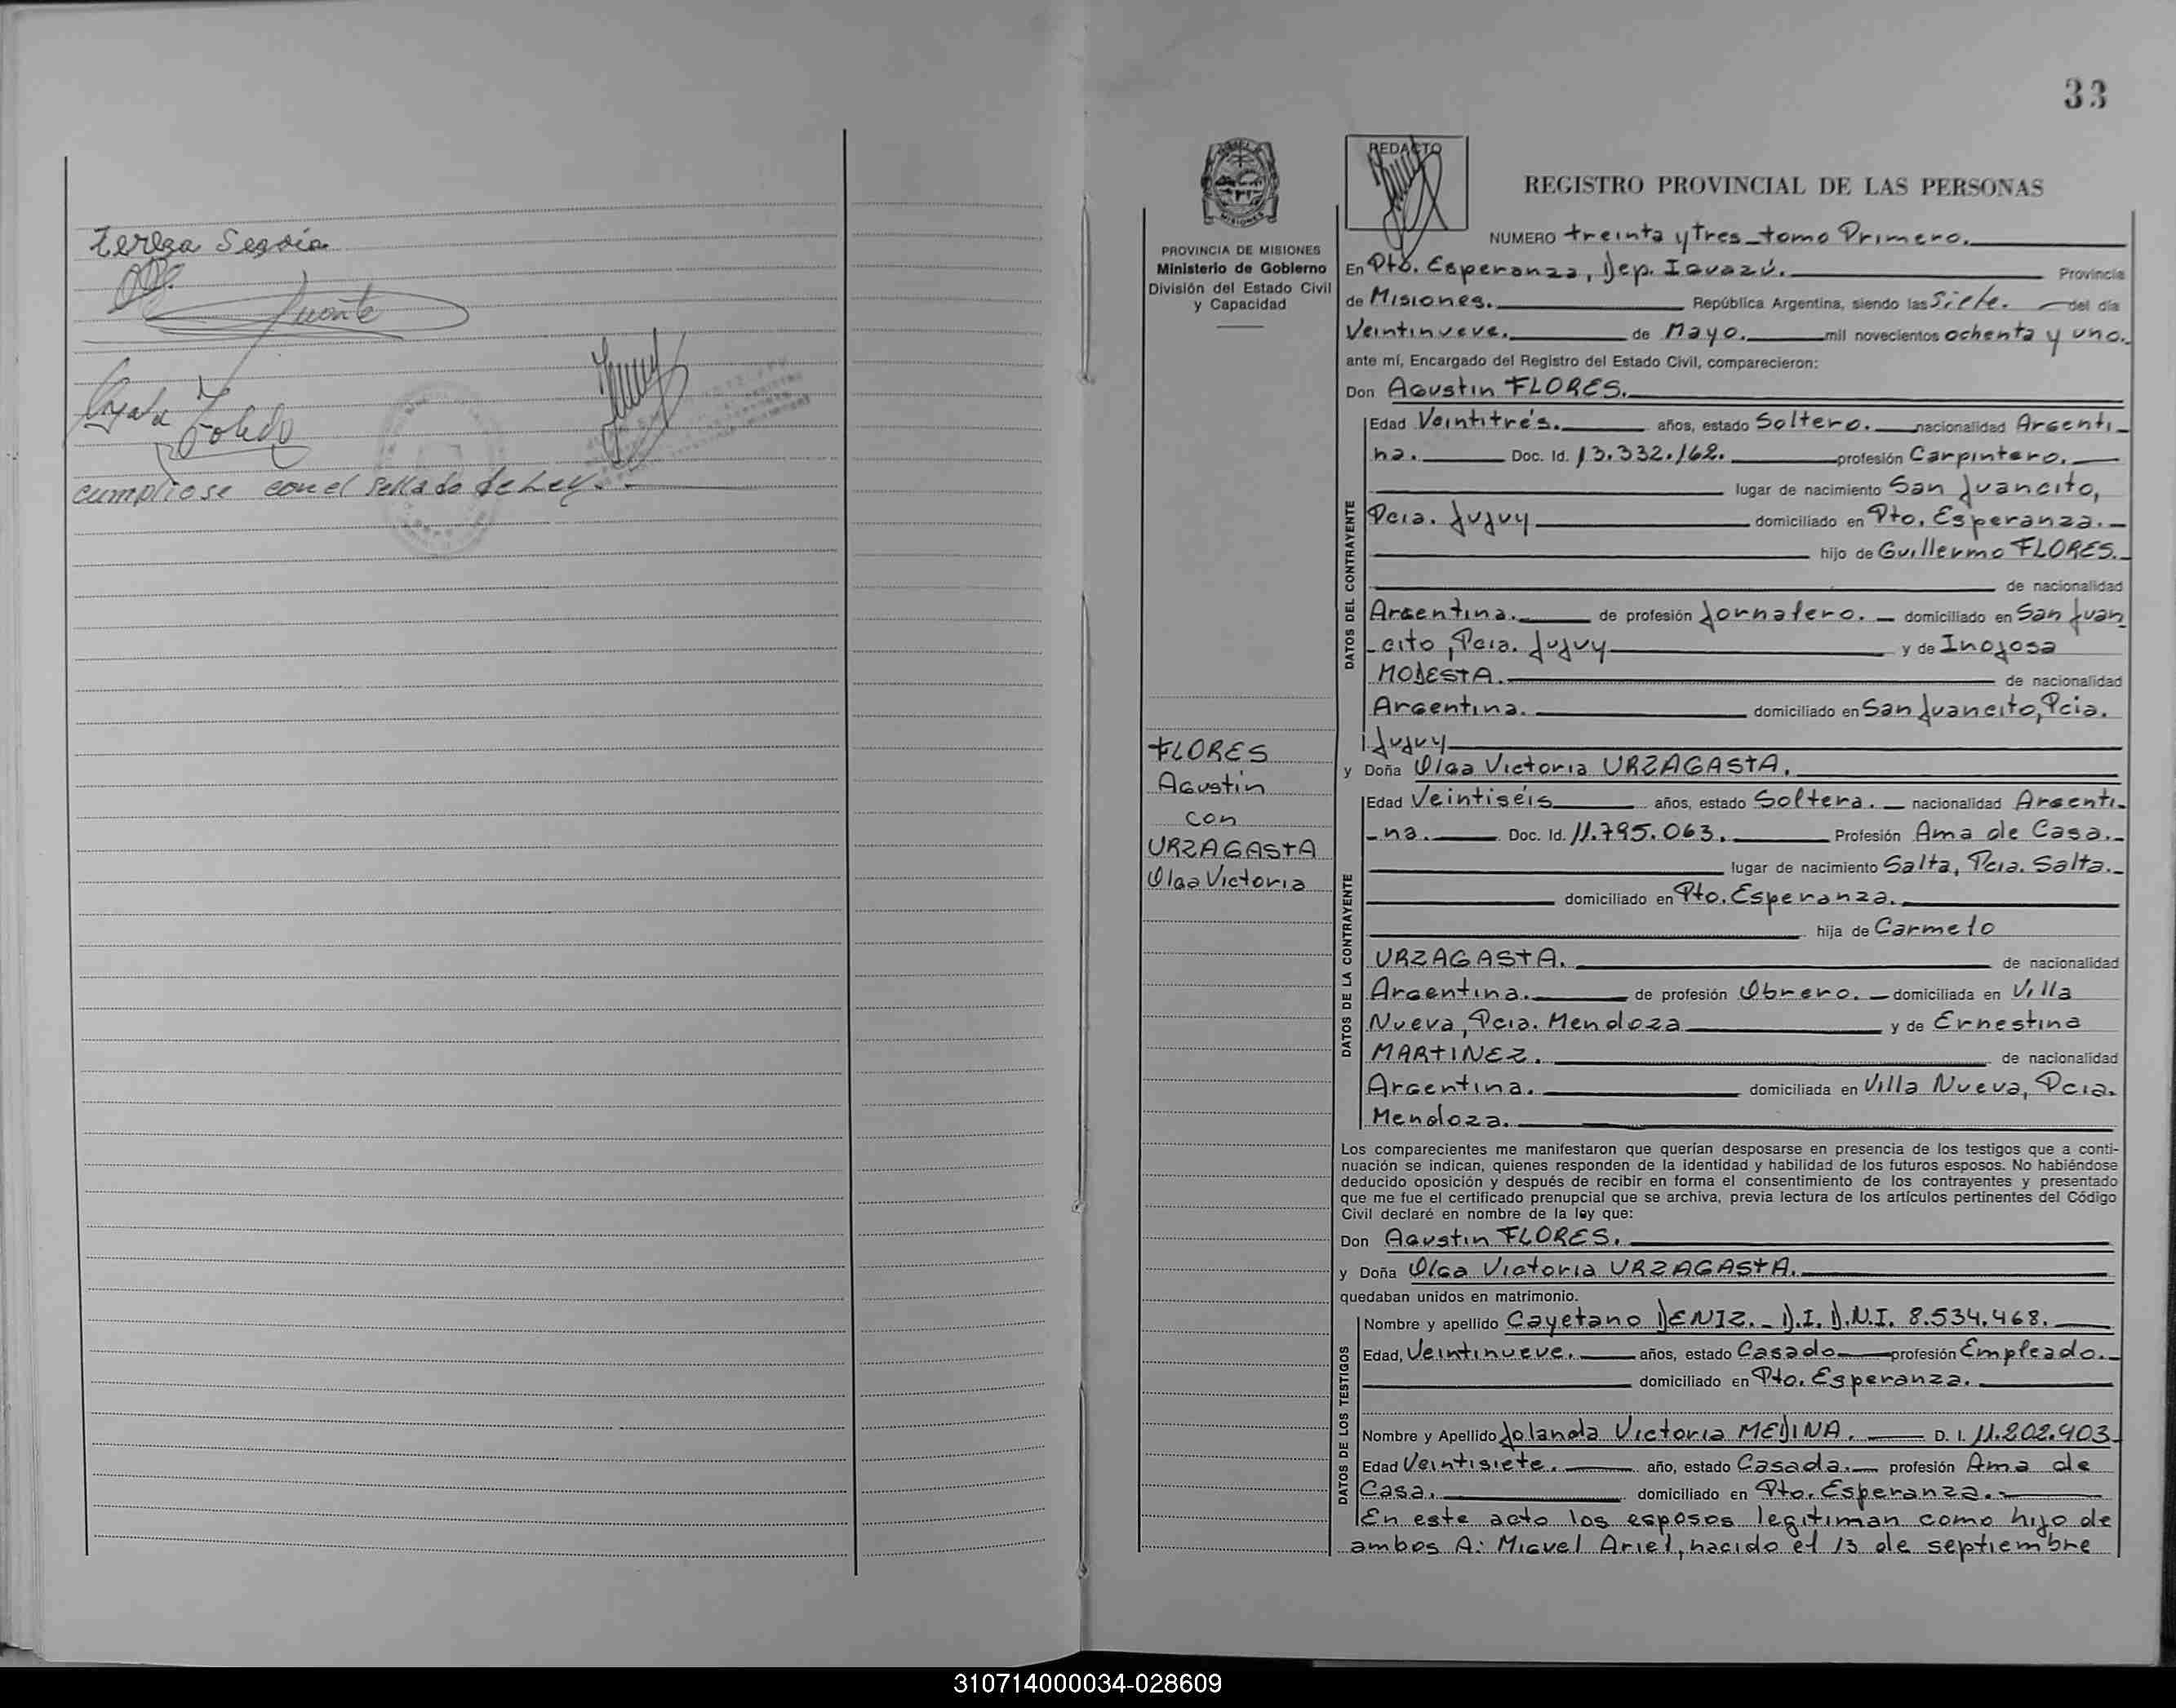 Teresa Segovia
Toledo
cumpliose con el sellado de Ley.
33
REDACTO
REGISTRO PROVINCIAL DE LAS PERSONAS
PROVINCIA DE MISIONES
Ministerio de Gobierno
División del Estado Civil
y Capacidad
NUMERO treinta y tres - tomo Primero.
En Pto. Esperanza, Dep. Iguazú. Provincia
de Misiones. República Argentina, siendo las Siete. del día
Veintinueve. de Mayo. mil novecientos ochenta y uno.
ante mí, Encargado del Registro del Estado Civil, comparecieron:
Don Agustin FLORES.
DATOS DEL CONTRAYENTE
Edad Veintitrés. años, estado Soltero. nacionalidad Argenti-
na. Doc. Id. 13.332.162. profesión Carpintero.
lugar de nacimiento San Juancito,
Pcia. Jujuy domiciliado en Pto. Esperanza.
hijo de Guillermo FLORES.
de nacionalidad
Argentina. de profesión Jornalero. domiciliado en San Juan
-cito, Pcia. Jujuy y de Inojosa
MODESTA. de nacionalidad
Argentina. domiciliado en San Juancito, Pcia.
Jujuy
FLORES
Agustin
con
URZAGASTA
Olga Victoria
y Doña Olga Victoria URZAGASTA.
DATOS DE LA CONTRAYENTE
Edad Veintiséis años, estado Soltera. nacionalidad Argenti-
-na. Doc. Id. 11.795.063. Profesión Ama de Casa.
lugar de nacimiento Salta, Pcia. Salta.
domiciliado en Pto. Esperanza.
hija de Carmelo
URZAGASTA. de nacionalidad
Argentina. de profesión Obrero. domiciliada en Villa
Nueva, Pcia. Mendoza y de Ernestina
MARTINEZ. de nacionalidad
Argentina. domiciliada en Villa Nueva, Pcia.
Mendoza.
Los comparecientes me manifestaron que querían desposarse en presencia de los testigos que a conti-
nuación se indican, quienes responden de la identidad y habilidad de los futuros esposos. No habiéndose
deducido oposición y después de recibir en forma el consentimiento de los contrayentes y presentado
que me fue el certificado prenupcial que se archiva, previa lectura de los artículos pertinentes del Código
Civil declaré en nombre de la ley que:
Don Agustin FLORES.
y Doña Olga Victoria URZAGASTA.
quedaban unidos en matrimonio.
DATOS DE LOS TESTIGOS
Nombre y apellido Cayetano DENIZ. - D.I. D.N.I. 8.534.468.
Edad, Veintinueve. años, estado Casado profesión Empleado.
domiciliado en Pto. Esperanza.
Nombre y Apellido Jolanda Victoria MEDINA. D. I. 11.202.403
Edad Veintisiete. año, estado Casada. profesión Ama de
Casa. domiciliado en Pto. Esperanza.
En este acto los esposos legitiman como hijo de
ambos A: Miguel Ariel, nacido el 13 de septiembre
310714000034-028609